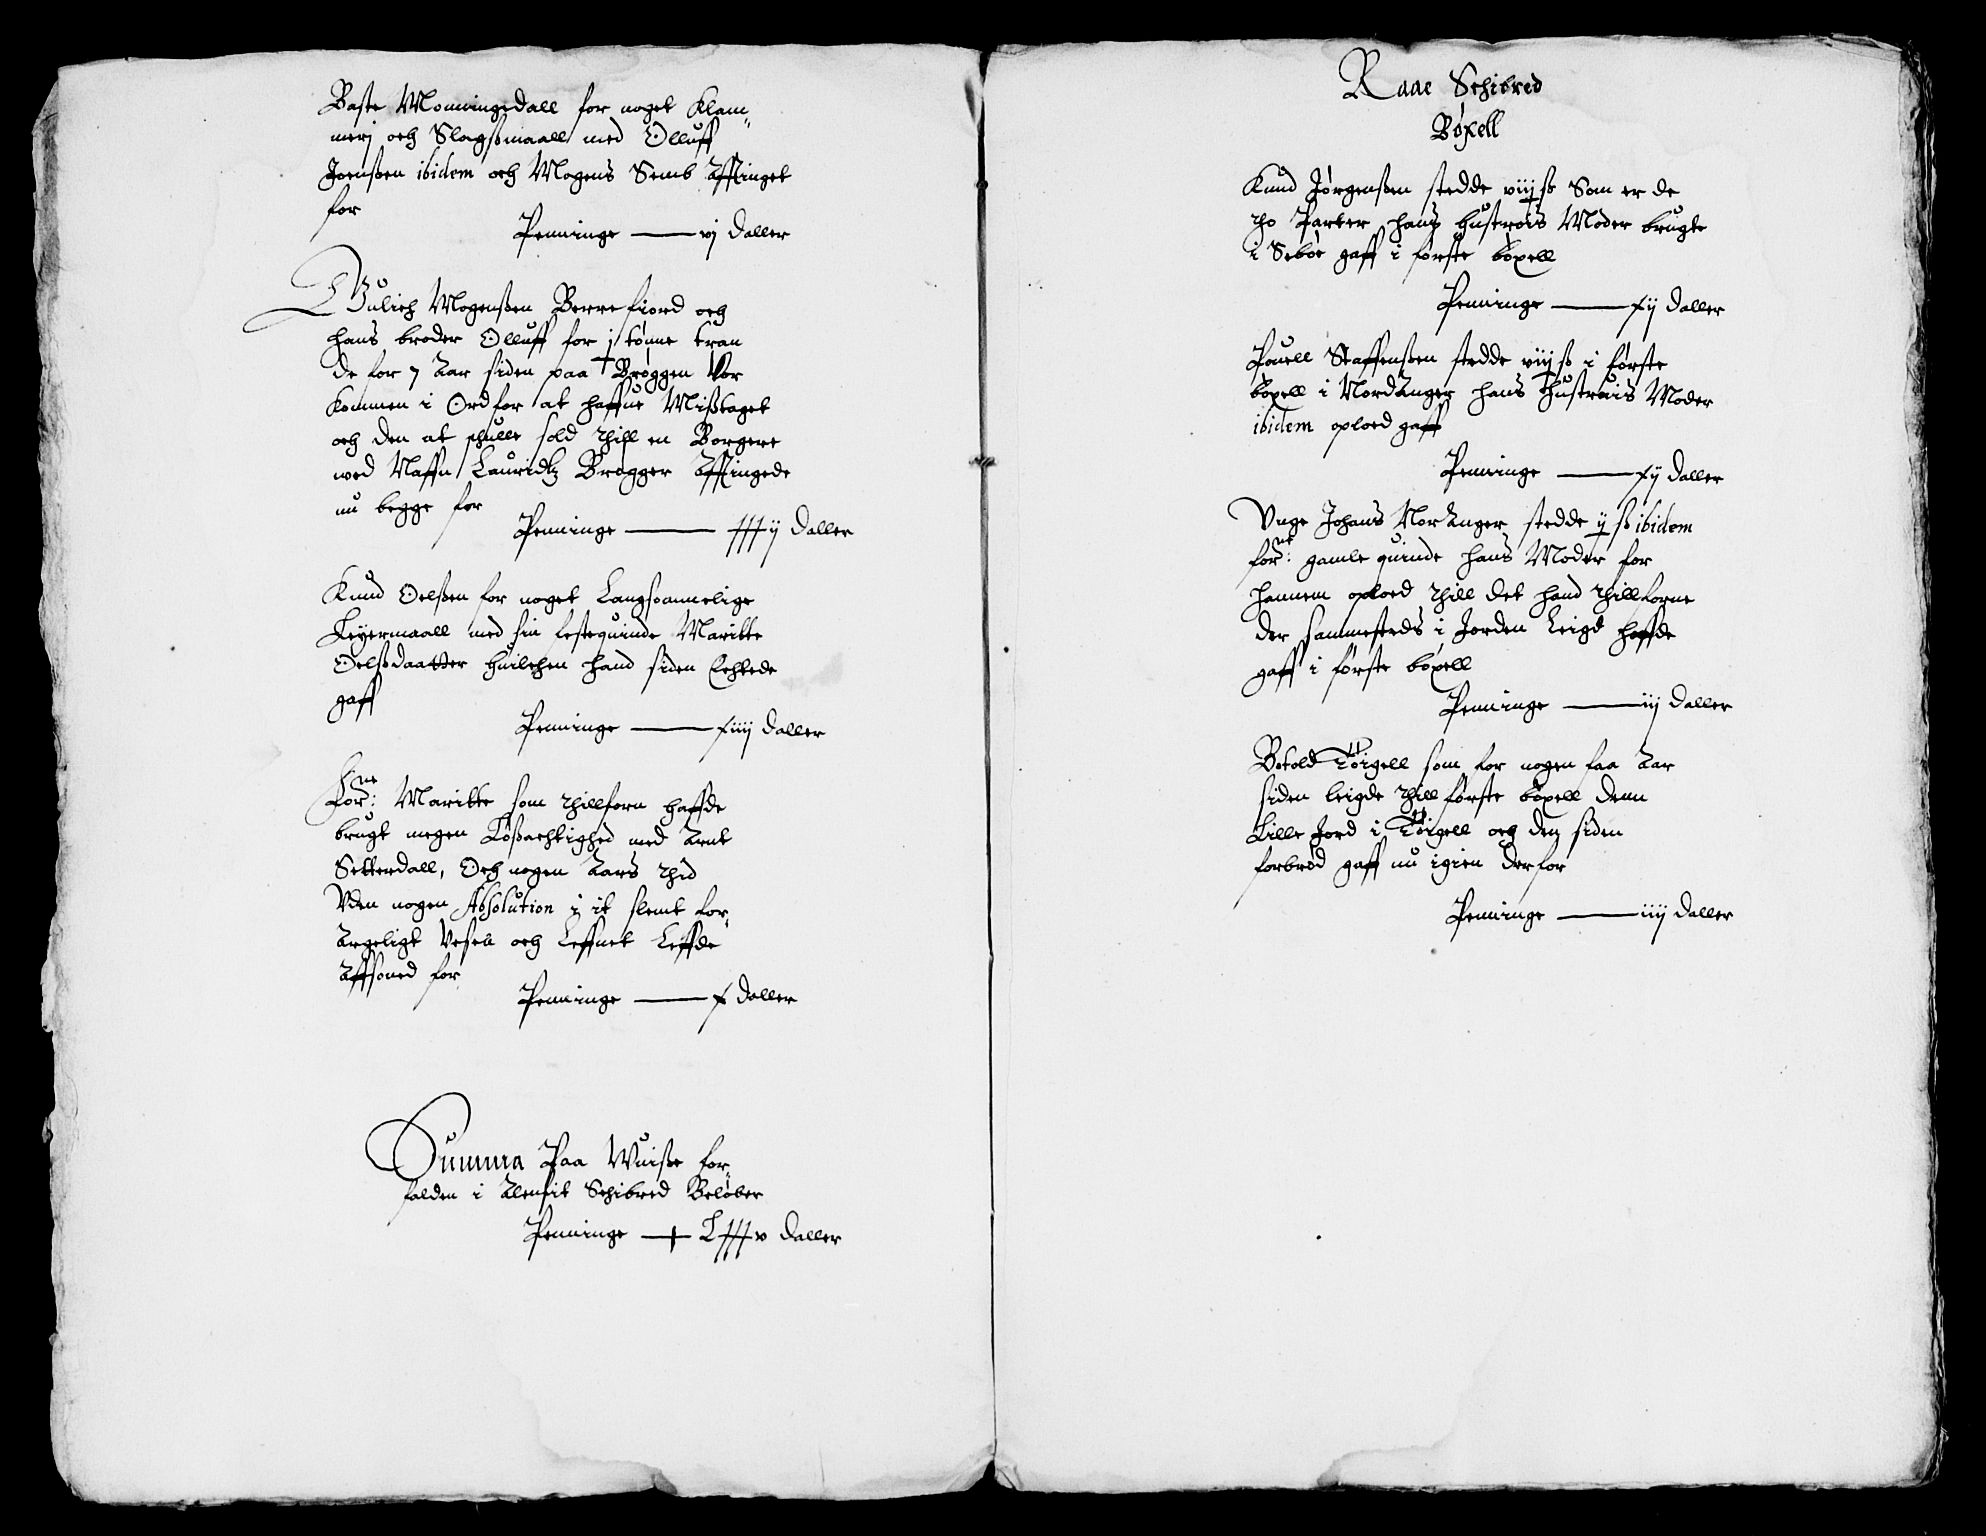 Baste Monningsdall for noget Klam„
merj och Slagsmaall med Olluff
Joenßen ibidem och Mogens Semb Affinget
for
Penninge — vj daller
Wulich Mogenßen Berrefiord och
hans broder Olluff for j tønne tran
de for 7 Aar siden paa Brøggen Vor
kommen i Ord for at haffue Mißtaget
och den at schulle sold thill en Borgere
wed Naffn Lauridtz Brøgger Affingede
nu begge for
Penninge — xxxij daller
Knud Oelßen for noget Langsommelige
Leyermaall med sin festequinde Maritte
Oelßdaatter huilchen hand siden Echtede
gaff
Penninge — xiiij daller
For:ne Maritte som thillforn haffde
brugt megen Løßachtighed med Arnt
Setterdall, Och nogen Aars thid
Vden nogen Absolution i it slemt for„
Argeligt Vesen och Leffnet Leffde
Affsoned for
Penninge — x daller
Summa Paa Wuiße for„
falden i Alenfit Schibred Beløber
Penninge — Lxxxv daller
Raae Schibred
Bøxell
Knud Jørgenßen stedde viiij ß Som er de
tho Parter hans hustrøis Moder brugte
i Sebøe gaff i første bøxell
Penninge — xij daller
Pouell Staffenßen stedde viiij ß i første
bøxell i NordAnger hans Hustruis Moder
ibidem oploed gaff
Penninge — xij daller
Vnge Johans NorAnger stedde ij ß ibidem
for:ne gamle quinde hans Moder for
hannem oploed thill det hand thillforne
der sammesteds i Jorden Leigd haffde
gaff i første bøxell
Penninge — iij daller
Botold Tøigell som for nogen faa Aar
siden leigde thill første bøxell denn
Lille Jord i Tøigell och den siden
forbrød gaff nu igien derfor
Penninge — iiij daller